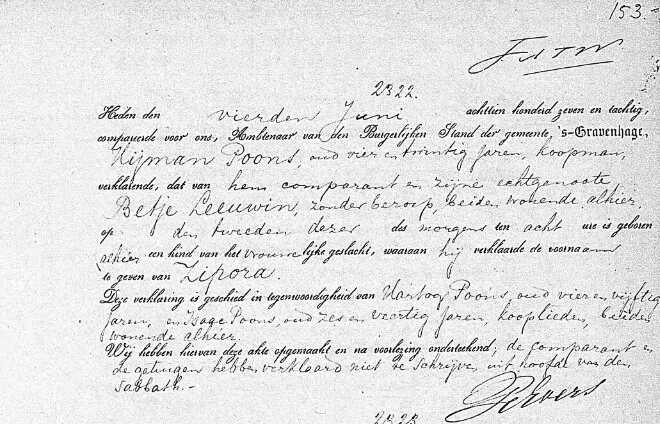 153.
2322.
Heden den vierden Juni achttien honderd zeven en tachtig,
compareerde voor ons, Ambtenaar van den Burgerlijken Stand der gemeente, 's-Gravenhage,
Hijman Poons, oud vier en twintig jaren, koopman,
verklarende, dat van hem comparant en zijne echtgenoote
Betje Leeuwin, zonder beroep, beiden wonende alhier,
op den tweeden dezer des morgens ten acht ure is geboren
alhier een kind van het vrouwelijke geslacht, waaraan hij verklaarde de voornaam
te geven van Zipora.
Deze verklaring is geschied in tegenwoordigheid van Hartog Poons, oud vier en vijftig
jaren, en Isage Poons, oud zes en veertig jaren, kooplieden, beiden
wonende alhier.
Wij hebben hiervan deze akte opgemaakt en na voorlezing onderteekend; de comparant en
de getuigen hebben verklaard niet te schrijven uit hoofde van den
Sabbath.-
2323